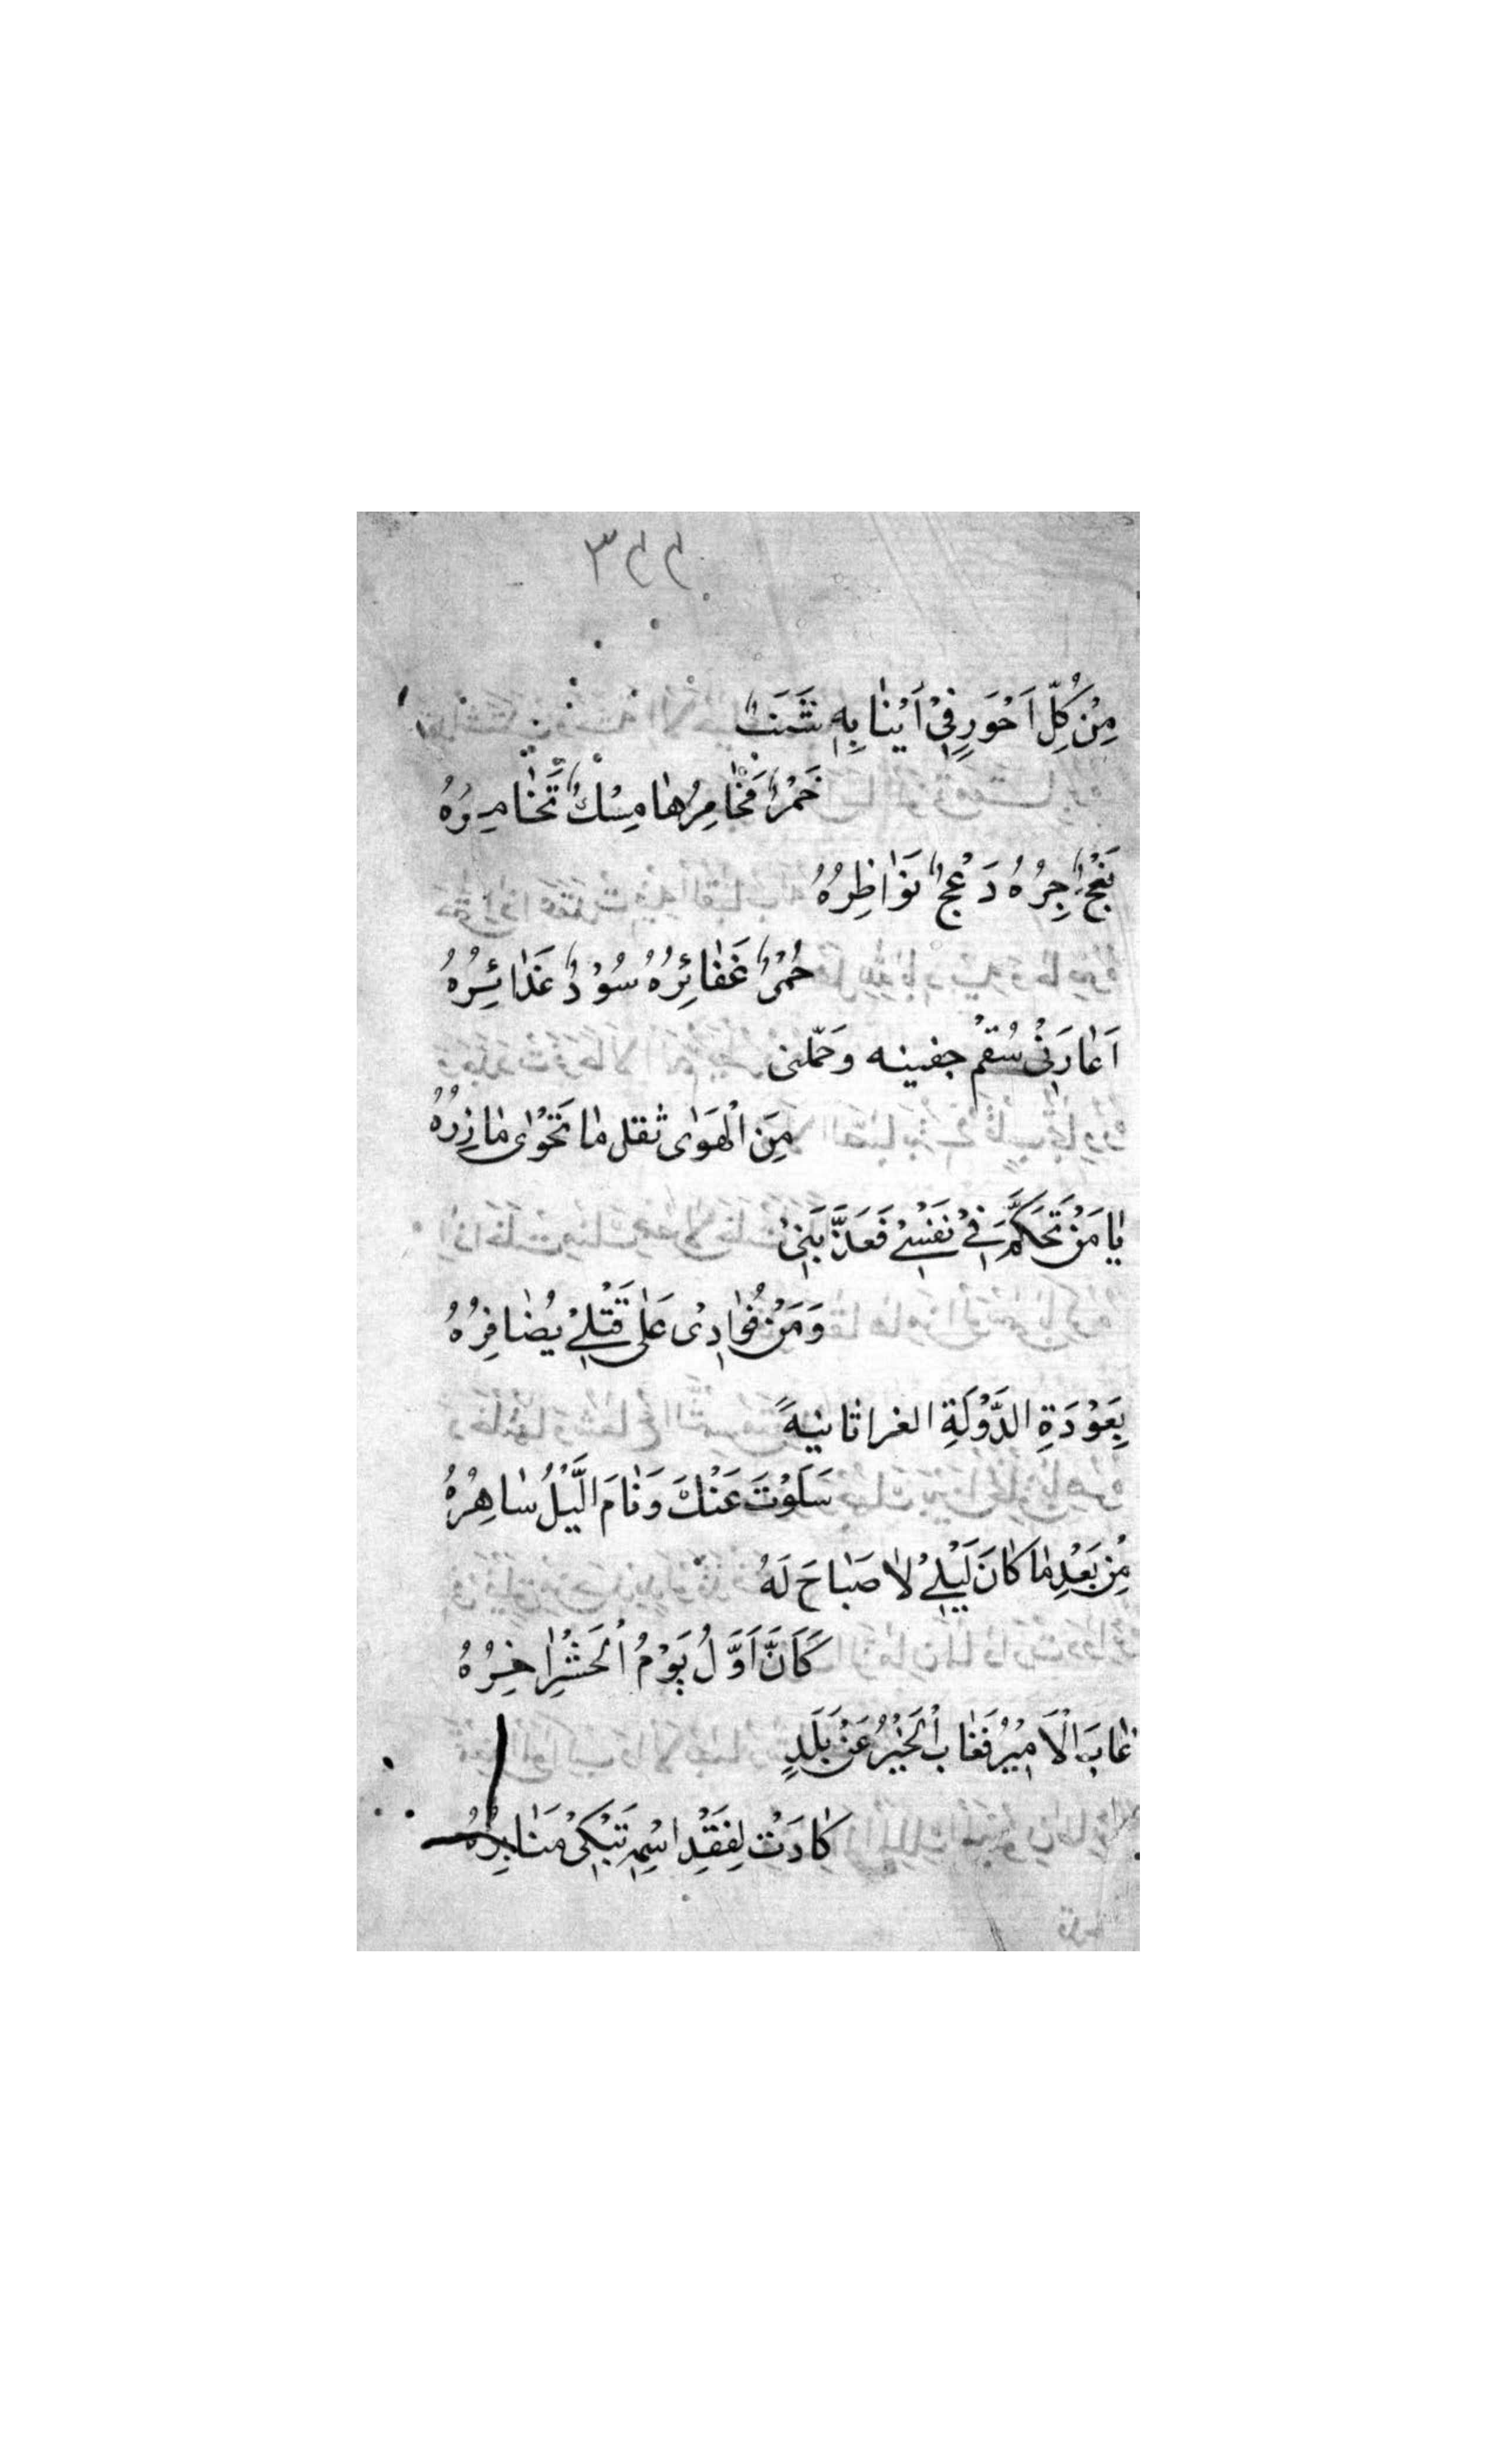 مِنْ كُلِّ اَحْوَرٍ فِيْ اَيْنَابِهِ شَنَبٌ
خَمْرٌ مَخَامِرُهَا مِسْكٌ تُخَامِرُهُ
نُعْجٌ مَحَاجِرُهُ دَعْجٌ نَوَاظِرُهُ
حُمْرٌ غَفَائِرُهُ سُوْدٌ غَدَائِرُهُ
اَعَارَنِيْ سُقْمَ جفينه وحَمّلنى
مِنَ الْهَوَى ثقل مَا تَحْوِى مَازِرُهُ
يَا مَنْ تَحَكَّمَ فِيْ نَفْسِيْ فَعَذَّبَنِيْ
وَمَنْ فُوَادِىْ عَلَى قَتْلِيْ يُضَافِرُهُ
بِعَوْدَةِ الدَّوْلَةِ الغرا ثانيهً
سَلَوْتَ عَنْكَ وَنَامَ الَّيْلُ سَاهِرُهُ
مِنْ بَعْدِ مَا كَانَ لَيْلِيْ لَا صَبَاحَ لَهُ
كَاَنَّ اَوَّلُ يَوْمُ الْحَشْرِ اخِرُهُ
غَابَ الْاَمِيْرُ فَغَابَ الْخَيْرُ عَنْ بَلَدٍ
كَادَتْ لِفَقْدِ اسْمِهِ تَبْكِىْ مَنَابِرُهُ